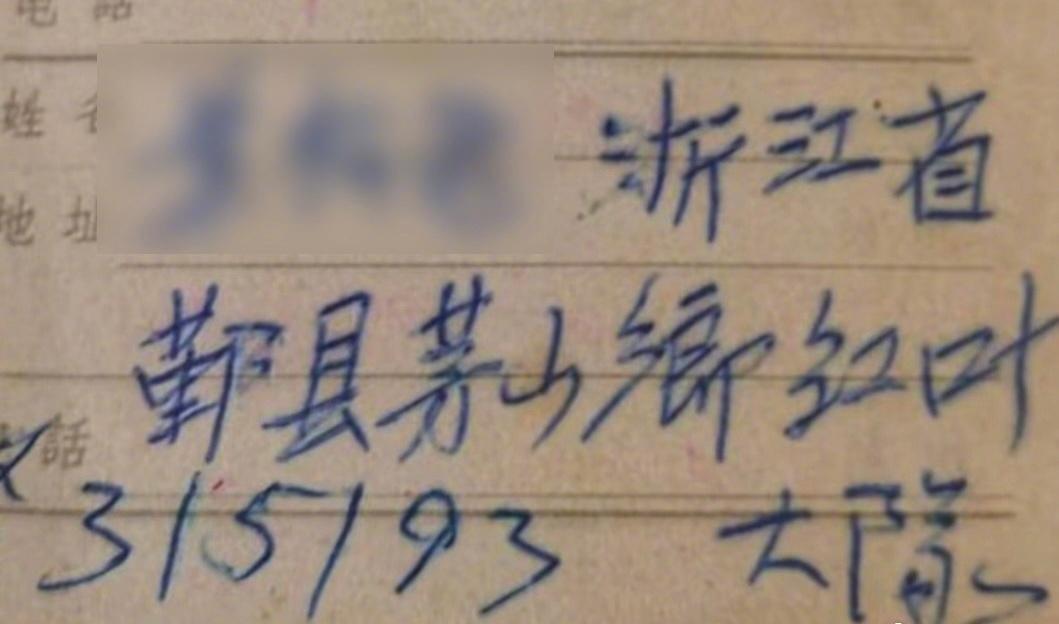 電話
姓名
浙江省
地址
鄞县茅山鄉红叶
話
315193 大隋